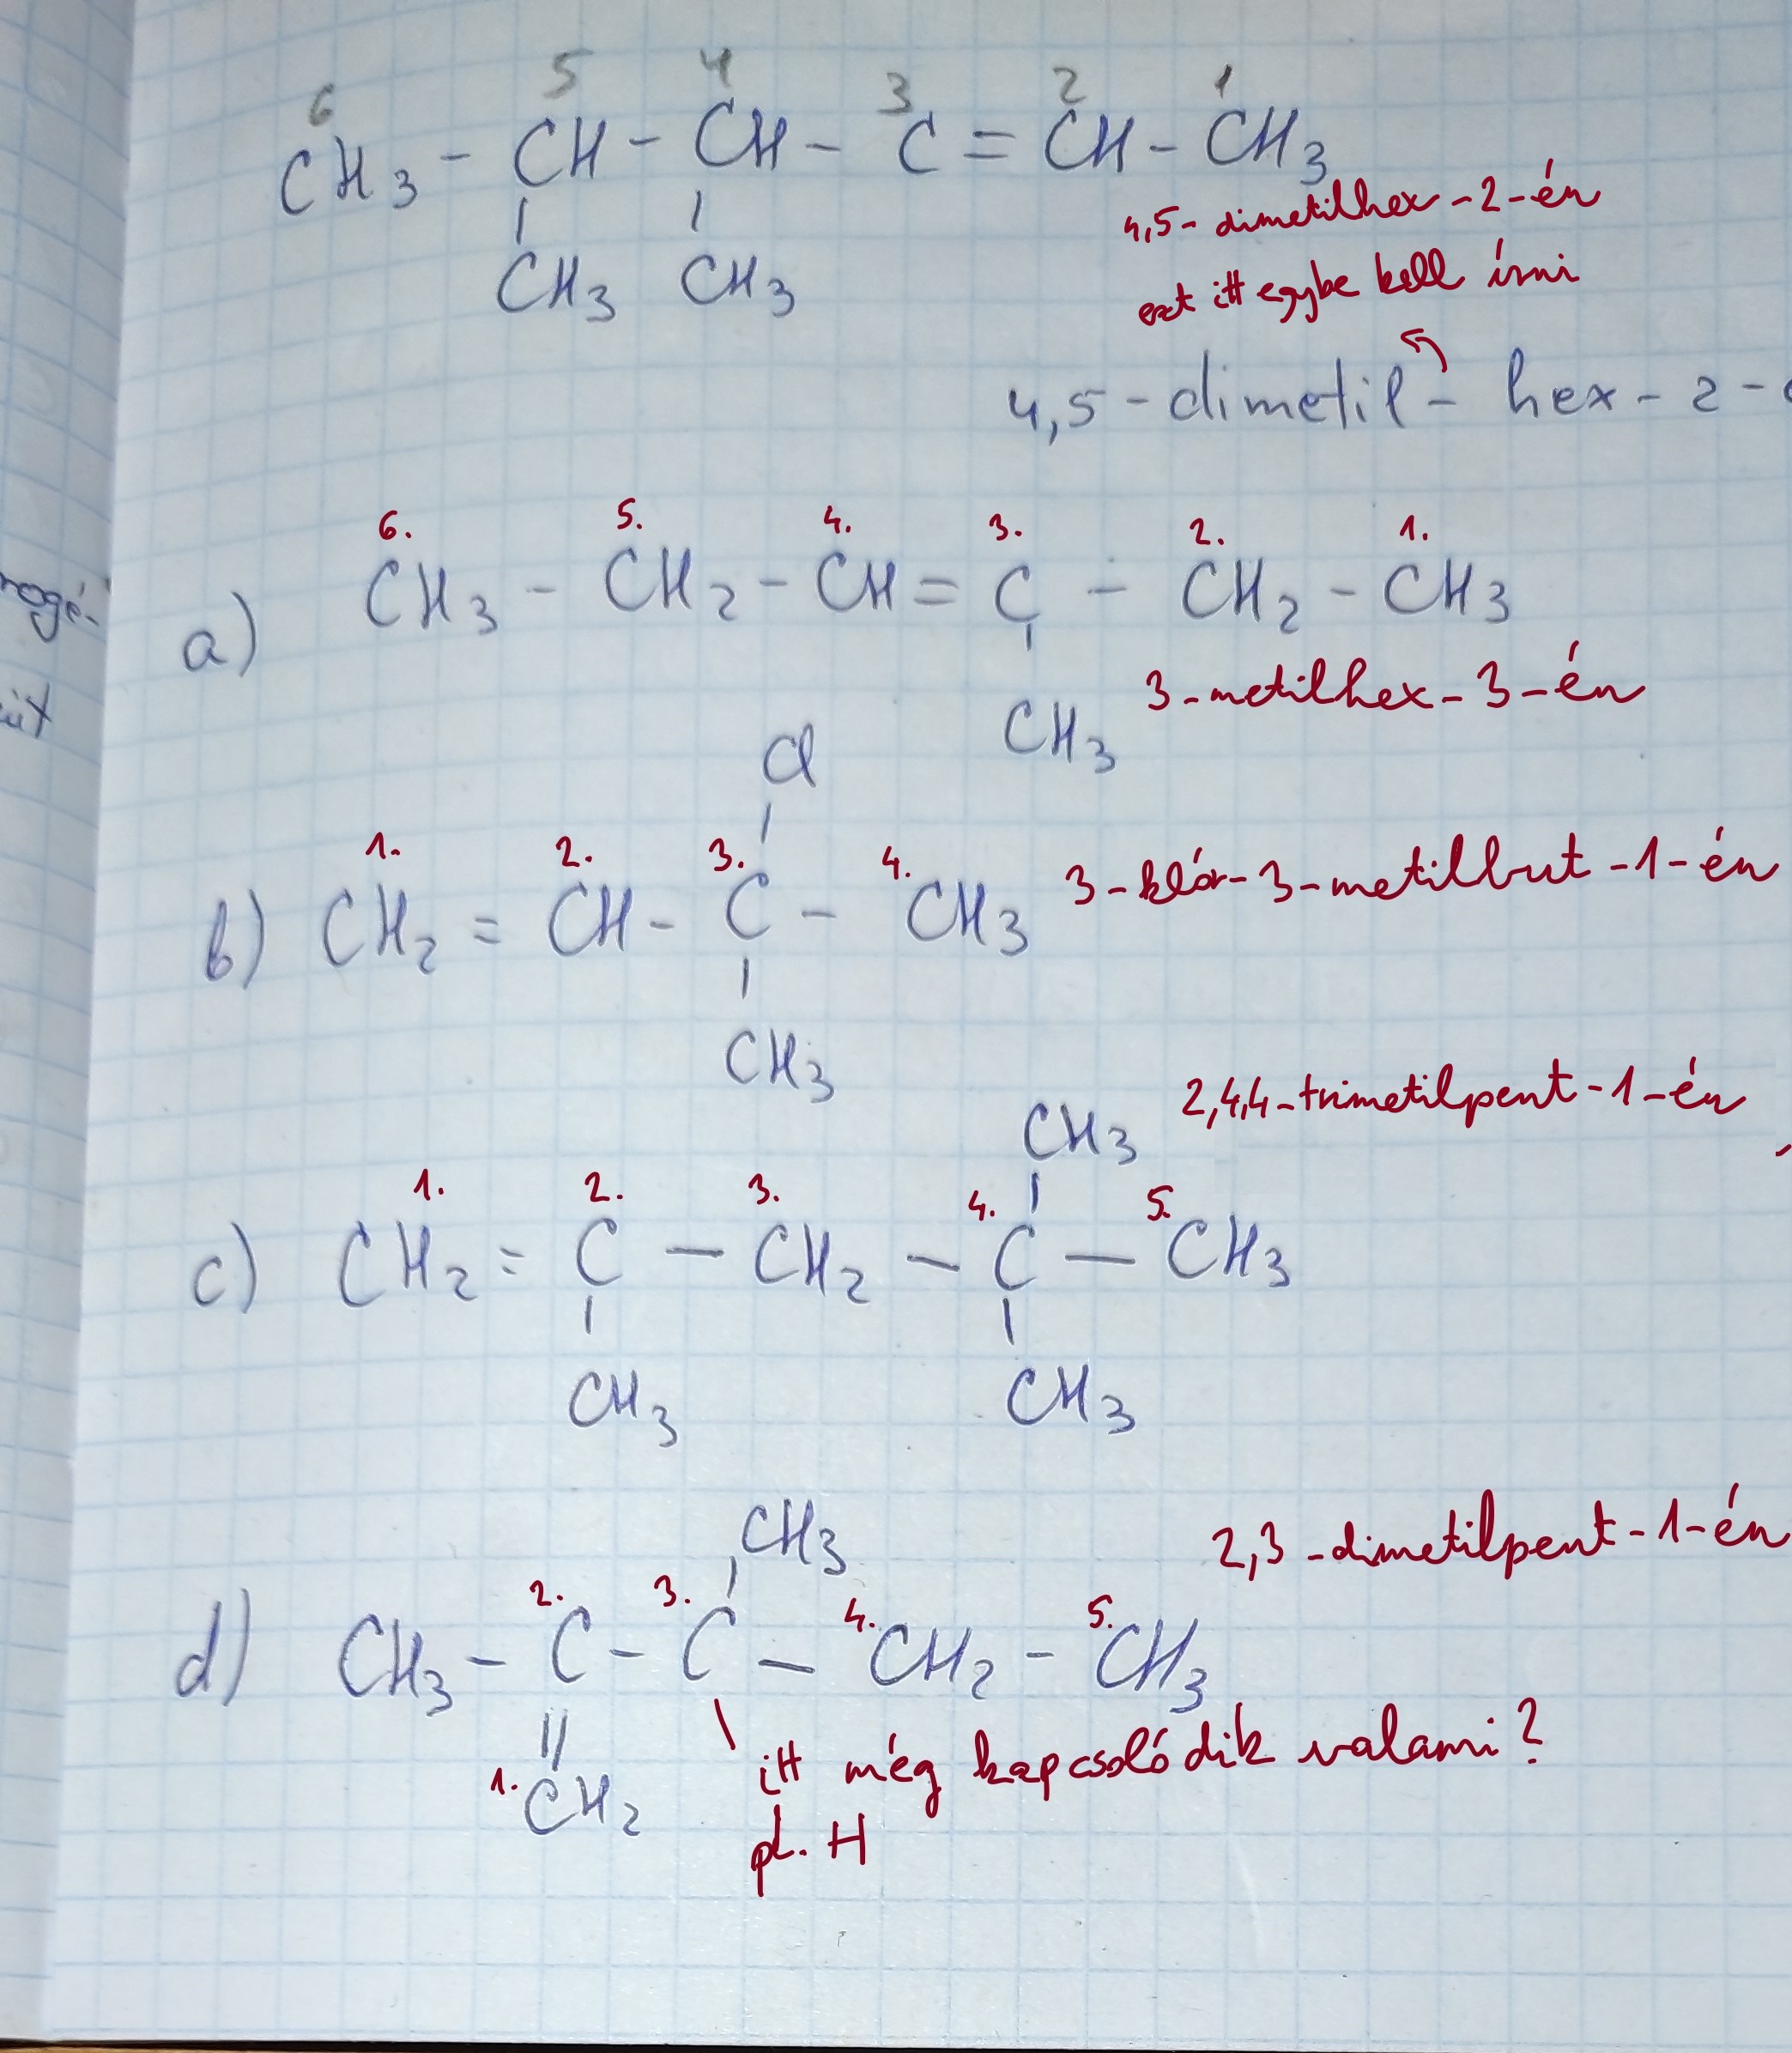 6 5 4 3 2 1
CH3 - CH - CH - C = CH - CH3
CH3 CH3
4,5-dimetilhex-2-én
ezt itt egybe kell írni
4,5-dimetil-hex-2-
6. 5. 4. 3. 2. 1.
a) CH3 - CH2 - CH = C - CH2 - CH3
CH3
3-metilhex-3-én
Cl
1. 2. 3. 4.
b) CH2 = CH - C - CH3
CH3
3-klór-3-metilbut-1-én
2,4,4-trimetilpent-1-én
CH3
1. 2. 3. 4. 5.
c) CH2 = C - CH2 - C - CH3
CH3 CH3
CH3
2,3-dimetilpent-1-én
2. 3. 4. 5.
d) CH3 - C - C - CH2 - CH3
1. CH2
itt még kapcsolódik valami?
pl. H